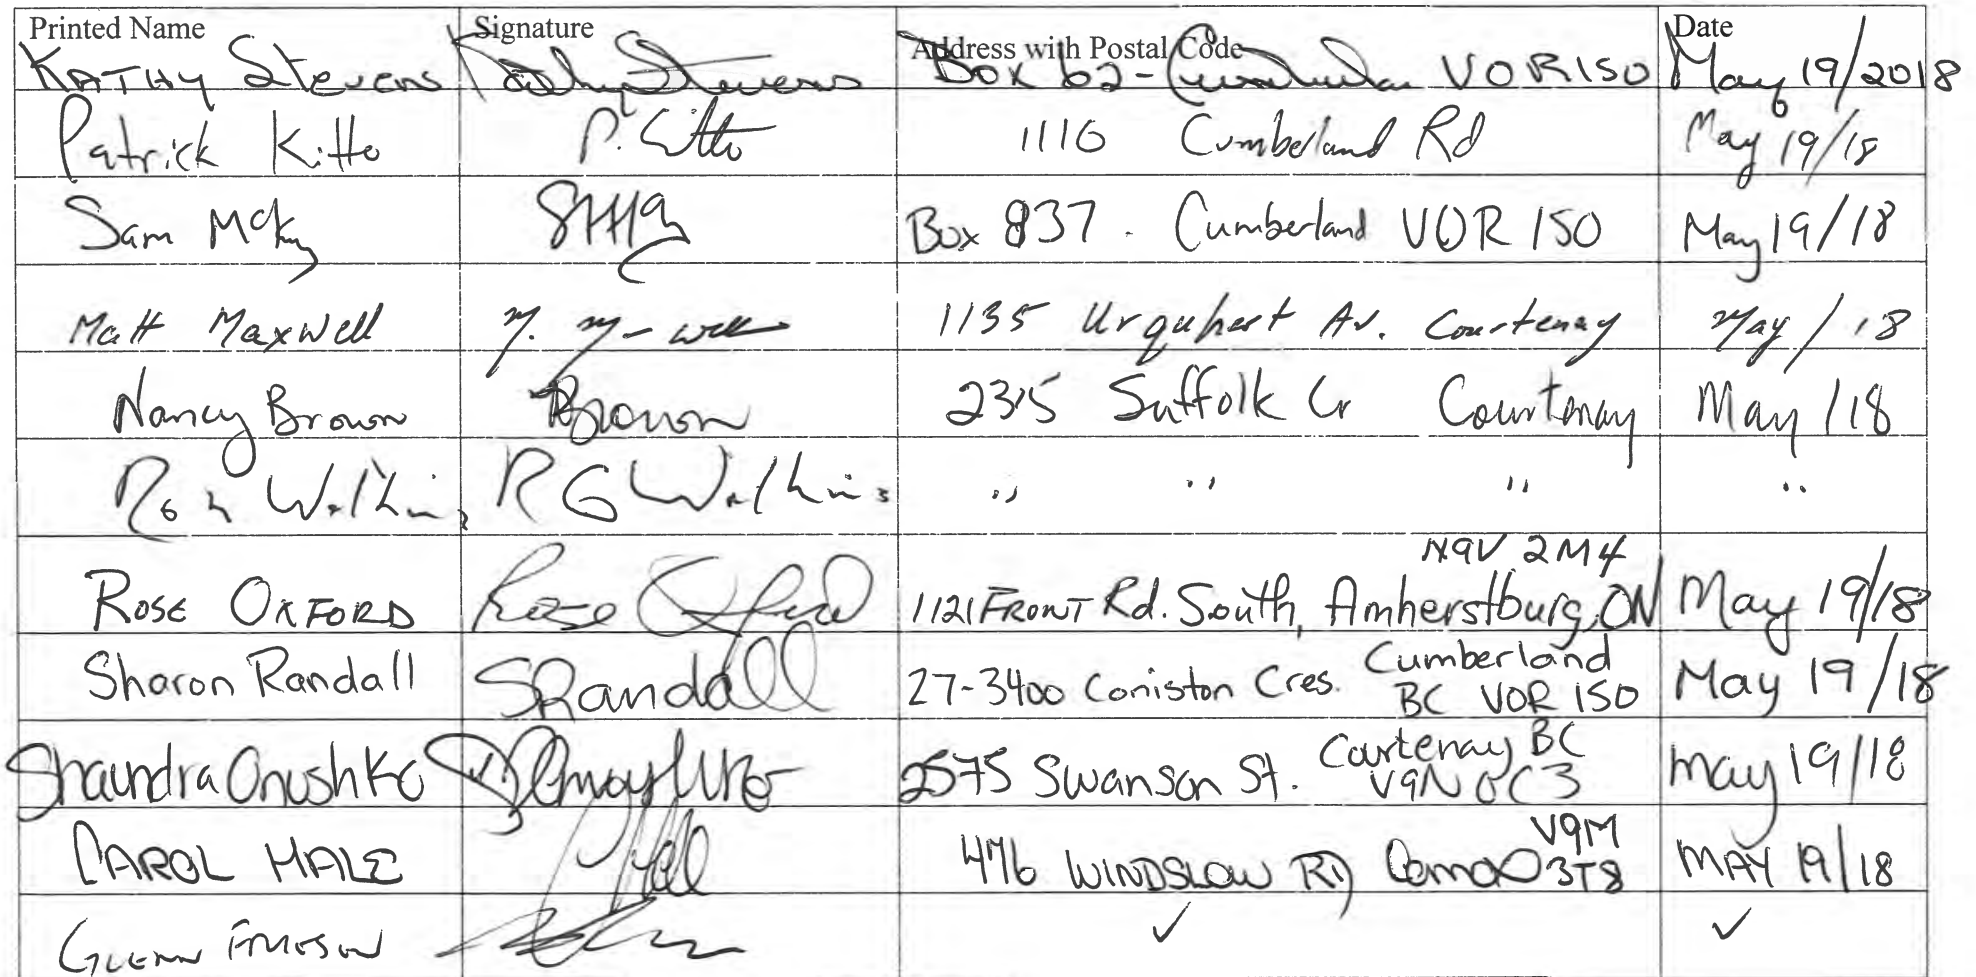 Printed Name Signature Address with Postal Code Date
KATHY Stevens Kathy Stevens Box 62 - Cumberland V0R1S0 May 19/2018
Patrick Kitto P. Kitto 1116 Cumberland Rd May 19/18
Sam McKay Box 837. Cumberland V0R 1S0 May 19/18
Matt Maxwell 1135 Urquhart Av. Courtenay May / 18
Nancy Brown Brown 2315 Suffolk Cr Courtenay May /18
Ron Watkins RG Watkins " " " "
N9V 2M4
ROSE OXFORD Rose Oxford 1121 FRONT Rd. South, Amherstburg, ON May 19/18
Sharon Randall SRandall 27-3400 Coniston Cres. Cumberland May 19/18
BC V0R 1S0
Shaundra Onushko 2575 Swanson St. Courtenay BC May 19/18
V9N 0C3
CAROL HALE 476 WINDSLOW RD Comox V9M MAY 19/18
3T8
GLENN ✓ ✓